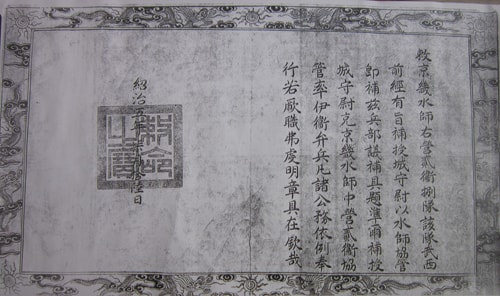 敕京畿水師右營貳衛捌隊該隊武西
前經有旨補授城守尉以水師協管
卽補茲兵部議補具題準爾補授
城守尉充京畿水師中營貳衛協
管率伊衛弁兵凡諸公務依例奉
行若厥職弗虔明章具在欽哉
紹治五年月陸日
敕命之寶